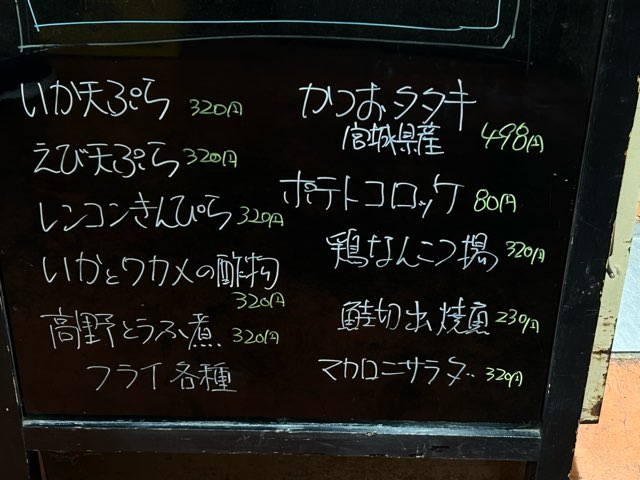 いか天ぷら 320円
えび天ぷら 320円
レンコンきんぴら 320円
いかとワカメの酢物
320円
高野とうふ煮 320円
フライ各種
かつおタタキ
宮城県産 498円
ポテトコロッケ 80円
鶏なんこつ揚 320円
鮭切出燻 230円
マカロニサラダ 320円